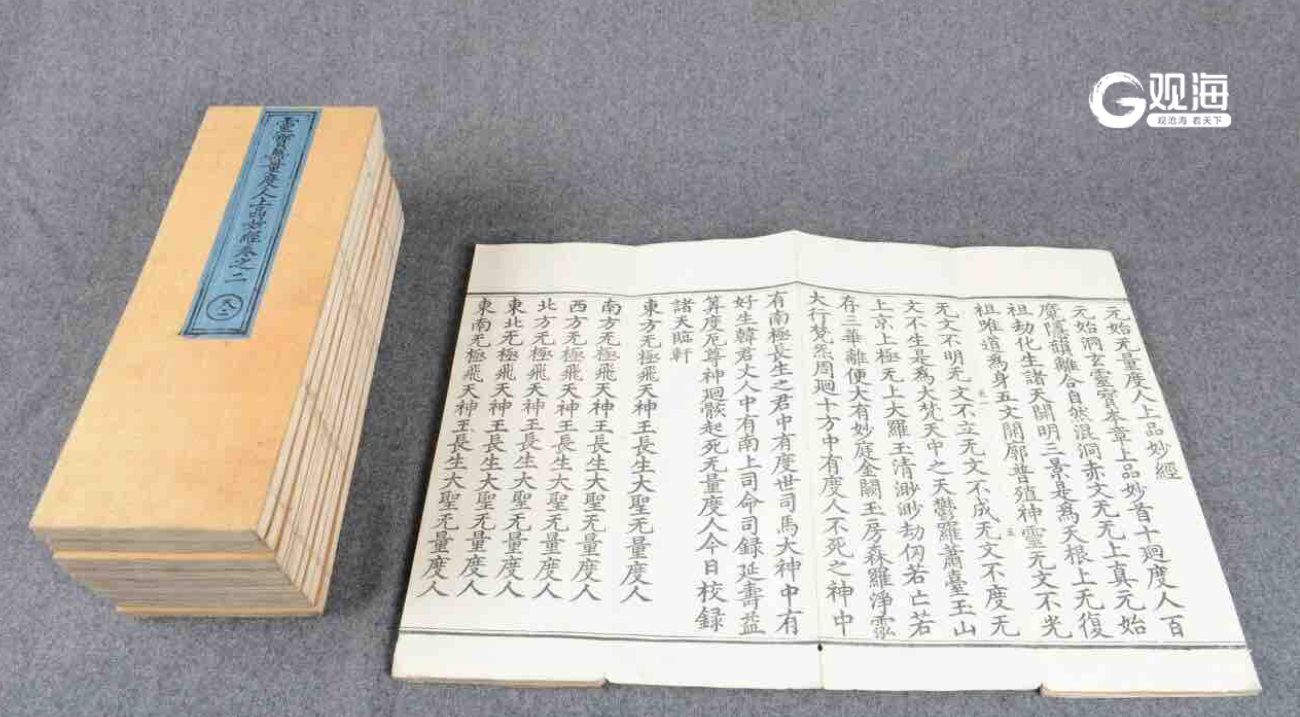 靈寶無量度人上品妙經卷之二
元始无量度人上品妙經
元始洞玄靈寳本章上品妙首十廻度人百
魔隱韻離合自然混洞赤文无无上真元始
祖劫化生諸天開明三景是爲天根上无復
祖唯道爲身五文開廓普殖神靈无文不光
无文不明无文不立无文不成无文不度无
文不生是爲大梵天中之天鬱羅蕭臺玉山
上京上極无上大羅玉清渺渺劫仞若亡若
存三華離便大有妙庭金闕玉房森羅淨泓
大行梵炁周廻十方中有度人不死之神中
有南極長生之君中有度世司馬大神中有
好生韓君丈人中有南上司命司録延壽益
算度厄尊神廻骸起死无量度人今日校録
諸天臨軒
東方无極飛天神王長生大聖无量度人
南方无極飛天神王長生大聖无量度人
西方无極飛天神王長生大聖无量度人
北方无極飛天神王長生大聖无量度人
東北无極飛天神王長生大聖无量度人
東南无極飛天神王長生大聖无量度人
观海
观沧海 看天下